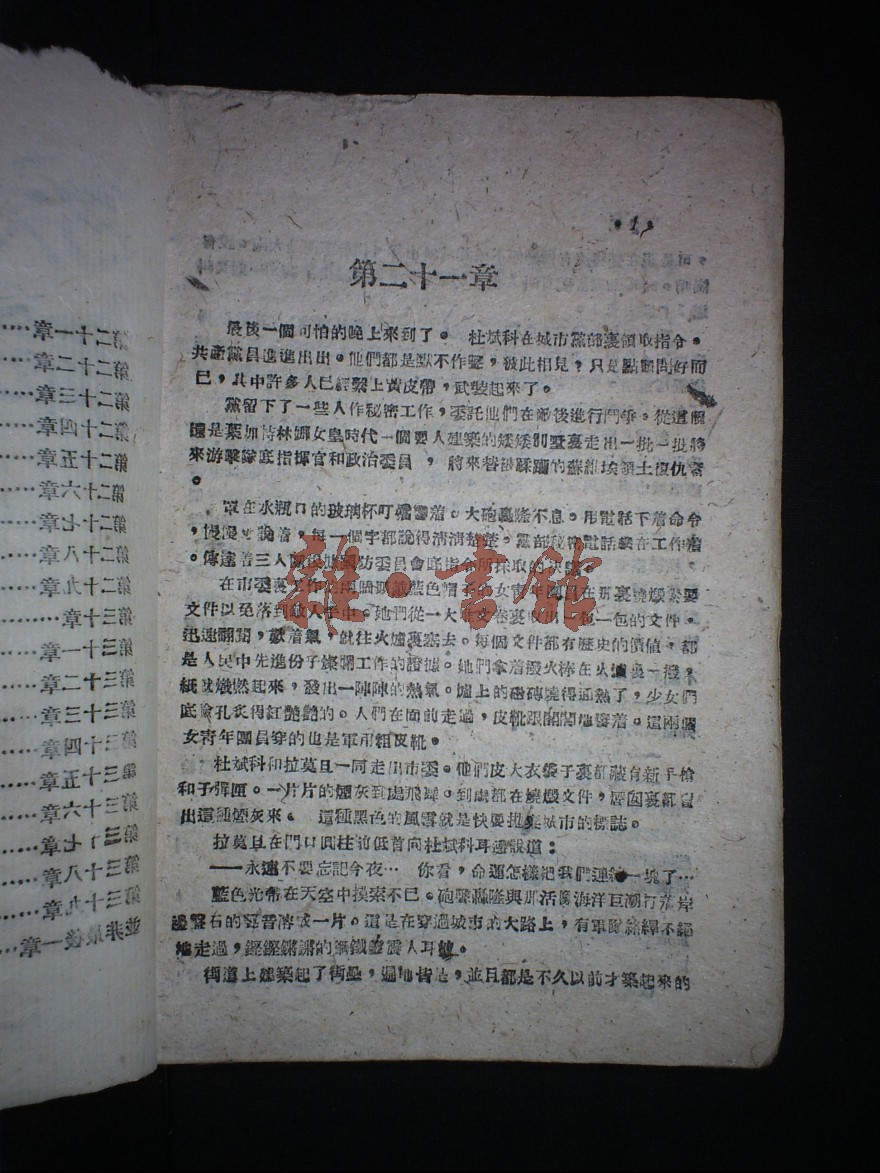 ·1·
第二十一章
最後一個可怕的晚上來到了。杜斌科在城市黨部裏領取指令。
共產黨員進進出出。他們都是默不作聲，彼此相見，只是點頭問好而
已，其中許多人已經繫上黃皮帶，武裝起來了。
黨留下了一些人作秘密工作，委託他們在部後進行鬥爭。從這個
還是葉加特林娜女皇時代一個要人建築的矮矮別墅裏走出一批一批將
來游擊隊底指揮官和政治委員，將來替被蹂躪的蘇維埃領土復仇者
。
罩在水瓶口的玻璃杯叮噹響着。大砲轟隆不息。用電話下着命令
，慢慢才說着，每一個字都說得清清楚楚。黨部秘密電話綫在工作着
。傳達着三人 國防委員會底指令所採取的決
在市委裏工作 藍色帽子的女青年團員在那裏燒燬要
文件以免落到敵人手中。她們從一大 文卷裏取出一包一包的文件，
迅速翻閱，歎着氣，就往火爐裏塞去。每個文件都有歷史的價值，都
是人民中先進份子燦爛工作的證據。她們拿着撥火棒在火爐裏一撥，
紙就燃燃起來，發出一陣陣的熱氣。爐上的磁磚燒得通熱了，少女們
底臉孔炙得紅艷艷的。人們在面前走過，皮靴跟閣閣地響着。這兩個
女青年團員穿的也是軍用粗皮靴。
杜斌科和拉莫旦一同走出市委。他們皮大衣袋子裏都藏有新手槍
和子彈匣。一片片的煙灰到處飛舞。到處都在燒燬文件，烟囪裏都冒
出這種煙灰來。這種黑色的風雪就是快要拋棄城市的標誌。
拉莫旦在門口圓柱前低首向杜斌科耳邊說道：
——永遠不要忘記今夜… 你看，命運怎樣把我們連結一塊了…
藍色光帶在天空中摸索不已。砲聲轟隆與那活像海洋巨潮打落岸
邊磐石的聲音溶成一片。這是在穿過城市的大路上，有軍隊絡繹不絕
地走過，鏗鏗鏘鏘的鋼鐵聲震人耳鼓。
街道上建築起了街壘，遍地皆是，並且都是不久以前才築起來的
雜·書館
第二十一章……
第二十二章……
第二十三章……
第二十四章……
第二十五章……
第二十六章……
第二十七章……
第二十八章……
第二十九章……
第三十章……
第三十一章……
第三十二章……
第三十三章……
第三十四章……
第三十五章……
第三十六章……
第三十七章……
第三十八章……
第三十九章……
並非最後一章……